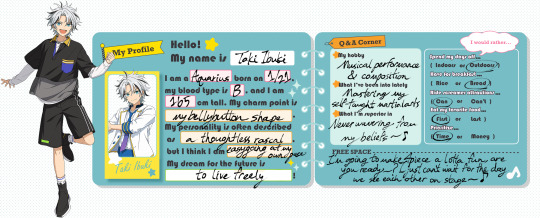 My Profile
Hello!
My name is Toki Ibuki
I am a Aquarius born on 1/21,
my blood type is B, and I am
165 cm tall. My charm point is
my bellybutton shape.
My personality is often described
as a thoughtless rascal
but I think I am easygoing at my own pace
My dream for the future is
to live freely!
Q&A Corner
My hobby
Musical performance
& composition
What I've been into lately
Mastering my
self-taught martial arts
What I'm superior in
Never wavering from
my beliefs~♪
I would rather...
Spend my days off...
( Indoors or Outdoors )
Have for breakfast...
( Rice or Bread )
Ride extreme attractions...
( Can or Can't )
Eat my favorite food...
( First or Last )
Prioritize...
( Time or Money )
FREE SPACE
I'm going to make space a lotta fun, are
you ready~? I just can't wait for the day
we see each other on stage~♪